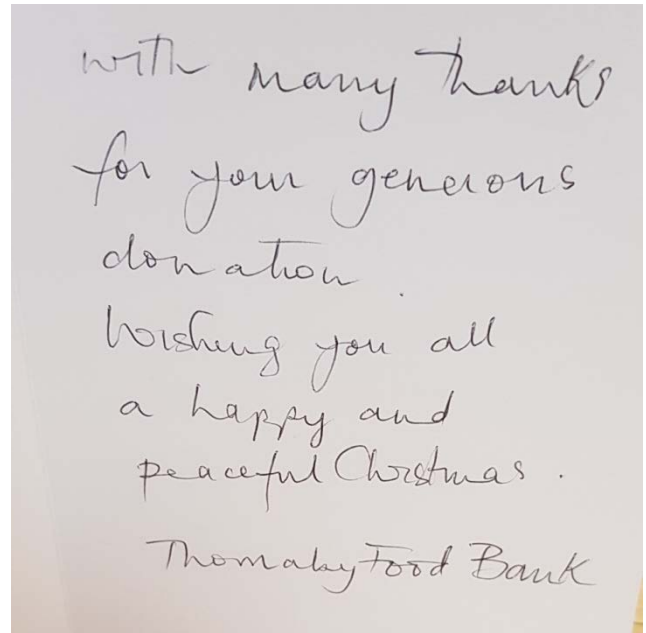 with many thanks
for your generous
donation.
Wishing you all
a happy and
peaceful Christmas.
Thornaby Food Bank